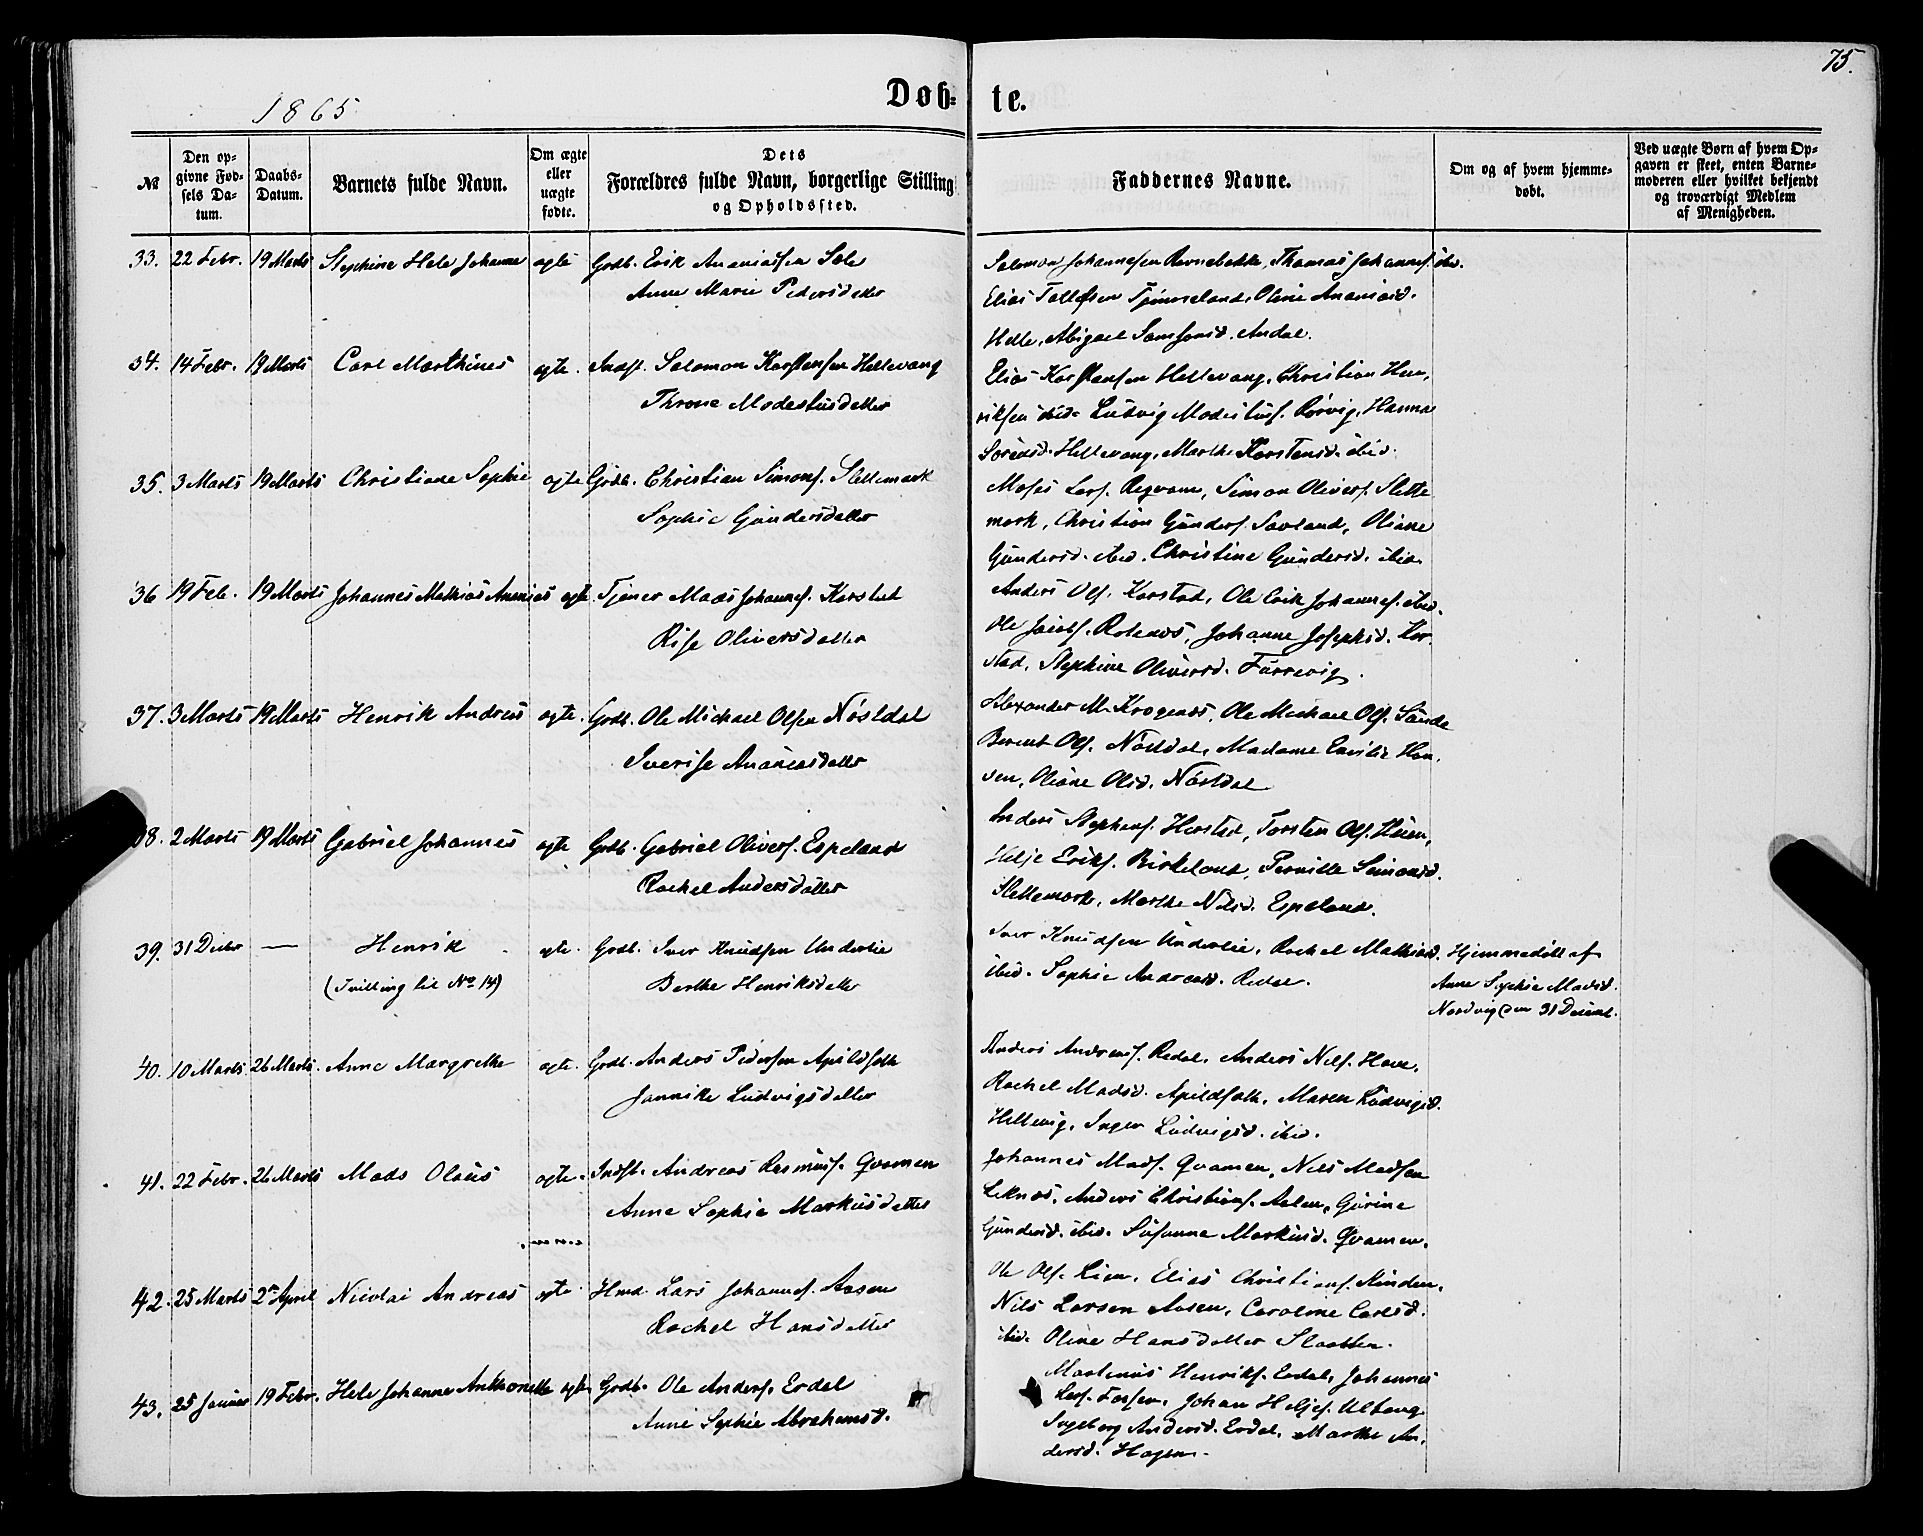 75.
1865
Døb- te.
№
Den opgivne Fødsels Datum.
Daabs-Datum.
Barnets fulde Navn.
Om ægte eller uægte fødte.
Dets Forældres fulde Navn, borgerlige Stilling og Opholdssted.
Faddernes Navne.
Om og af hvem hjemmedøbt.
Ved uægte Børn af hvem Opgaven er skeet, enten Barnemoderen eller hvilket bekjendt og troværdigt Medlem af Menigheden.
33. 22 Febr. 19 Marts Stephine Hele Johanne ægte Grdb. Erik Ananiassen Sole
Anne Marie Pedersdatter
Salomon Johannesen Ravnebekke, Thomas Johannes. ibid.
Elias Tollefsen Tjønneland, Oline Ananiasd.
Helle, Abigael Samsonsd. Andal.
34. 14 Febr. 19 Marts Carl Marthines ægte. Indst. Salomon Karstensen Hellevang
Throne Modestusdatter
Elias Karstensen Hellevang, Christian Hen-
riksen ibid. Ludvig Modestus. Rørvig, Hanna
Sørensd. Hellevang, Marthe Karstensd. ibid.
35. 3 Marts 19 Marts Christiane Sophie ægte Grdb. Christian Simons. Slettemark
Sophie Gundersdatter
Moses Lars. Simon Olivers. Slette
mark, Christian Gunders. Savland, Oliane
Gundersd. ibid. Christine Gundersd. ibid.
36 19 Feb. 19 Marts Johannes Mathias Ananias ægte. Tjener Mads Johannes. Korstad
Rise Oliversdatter
Anders Ols. Korstad, Ole Erik Johannes. ibid.
Ole Jacobs. Rotenæs, Johanne Josephsd. Kor-
stad, Stephine Oliversd. Furrevig.
37. 3 Marts 19 Marts Henrik Andreas ægte. Grdb. Ole Michael Olsen Nøstdal
Siverise Ananiasdatter
Alexander M. Krogenæs, Ole Michael Ols. Sande
Berent Ols. Nøstdal, Madame Emilie Han-
sen, Oliane Olsd. Nøstdal
38. 2 Marts 19 Marts Gabriel Johannes ægte Grdb. Gabriel Olivers. Espeland
Rachel Andersdatter
Anders Stephens. Herstad, Torsten Ols.
Helje Eriks. Birkeland, Pernille Simonsd.
Slettemark, Marthe Nilsd. Espeland.
39. 31 Decbr — Henrik ægte. Grdb. Iver Knudsen Underlie
(Tvilling til No 14) Berthe Henriksdatter
Iver Knudsen Underlie, Rachel Mathiasd.
ibid. Sophie Andreasd. Redal.
Hjemmedøbt af
Anne Sophie Madsd.
Nordvig den 31 Decemb.
40. 10 Marts 26 Marts. Anne Margrethe ægte. Grdb. Anders Pedersen Apildfalk
Jannike Ludvigsdatter
Anders Andreas. Redal, Anders Nils. Hove,
Rachel Madsd. Apildfalk, Maren Ludvigsd.
Hellevig, Inger Ludvigsd. ibid.
41. 22 Febr. 26 Marts Mads Olaus ægte. Indst. Andreas Rasmus. Qvamen
Anne Sophie Markusdatter
Johannes Mads. Qvamen, Nils Madsen
Leknæs, Anders Christians. Aalen, Gurine
Gundersd. ibid. Susanne Markusd. Qvamen.
42. 25 Marts 2 April Nicolai Andreas ægte Hmd. Lars Johannes. Aasen
Rachel Hansdatter
Ole Ols. Lien, Elias Christians. Rinden,
Nils Larsen Aasen, Caroline Carlsd.
ibid. Oline Hansdatter Slaatten.
43. 25 Januar 19 Febr. Hele Johanne Anthonette ægte Grdb. Ole Anders. Erdal
Anne Sophie Abrahamsd.
Martenus Henriks. Erdal, Johannes
Lars. Johan Heljes. Ulltang
Ingeborg Andersd. Erdal, Marthe An-
dersd. Hagen.